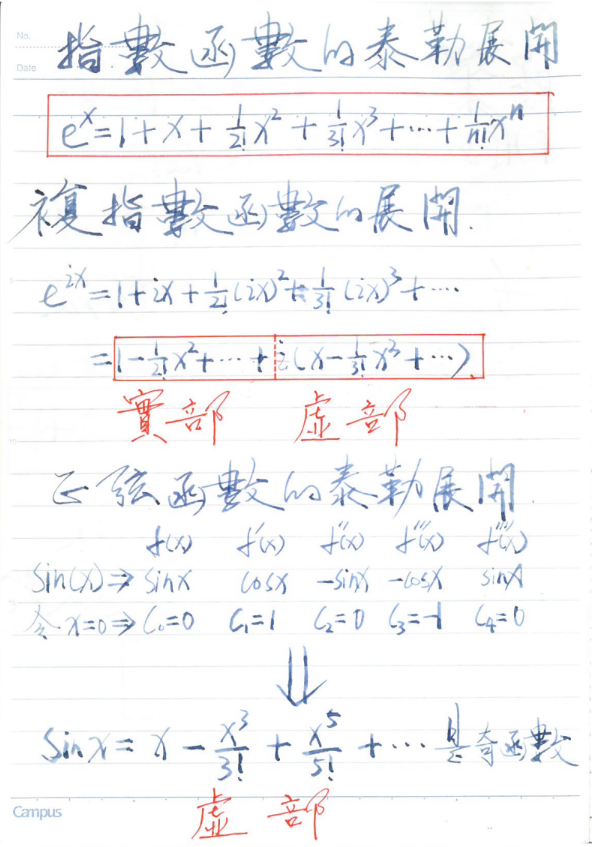 No.
Date
指數函數的泰勒展開
e^x = 1 + x + 1/2! x^2 + 1/3! x^3 + … + 1/n! x^n
複指數函數的展開.
e^{ix} = 1 + ix + 1/2! (ix)^2 + 1/3! (ix)^3 + …
= 1 - 1/2! x^2 + … + i(x - 1/3! x^3 + …)
實部 虛部
正弦函數的泰勒展開
f(x) f'(x) f''(x) f'''(x) f''''(x)
Sin(x) ⇒ sinx cosx -sinx -cosx sinx
令 x=0 ⇒ C₀=0 C₁=1 C₂=0 C₃=-1 C₄=0
⇓
Sinx = x - x^3/3! + x^5/5! + … 是奇函數
Campus
虛部